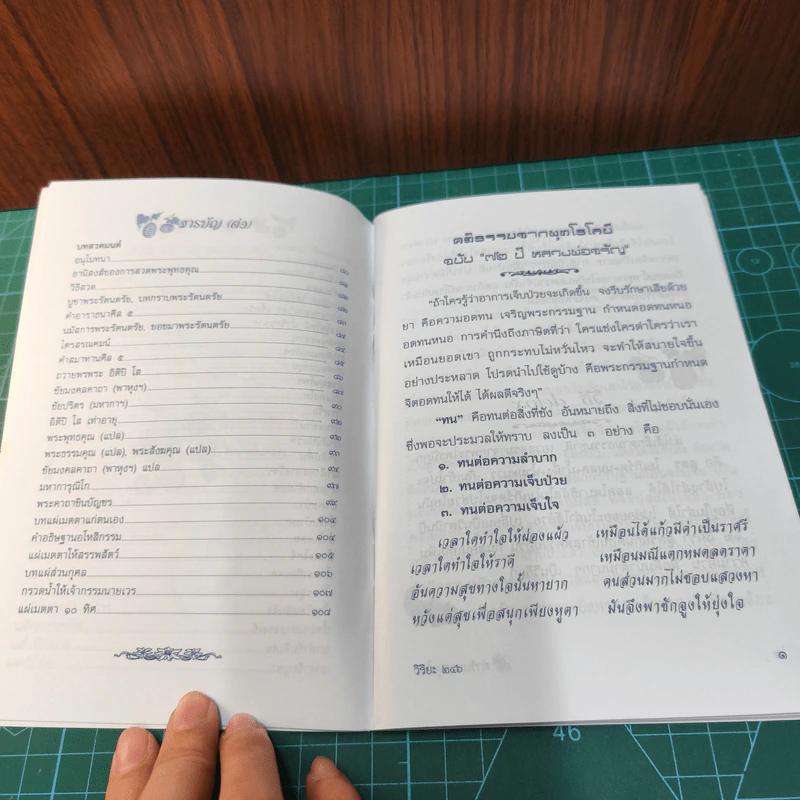 สารบัญ (ต่อ)
บทสวดมนต์
อนุโมทนา
อานิสงส์ของการสวดพระพุทธคุณ
วิธีสวด
บูชาพระรัตนตรัย, บทกราบพระรัตนตรัย
คำอาราธนาศีล ๕
นมัสการพระรัตนตรัย, ขอขมาพระรัตนตรัย
ไตรสรณคมน์
คำสมาทานศีล ๕
ถวายพรพระ อิติปิ โส
ชัยมงคลคาถา (พาหุงฯ)
ชัยปริตร (มหากาฯ)
อิติปิ โส เท่าอายุ
พระพุทธคุณ (แปล)
พระธรรมคุณ (แปล), พระสังฆคุณ (แปล)
ชัยมงคลคาถา (พาหุงฯ) แปล
มหาการุณิโก ๙๗
พระคาถาชินบัญชร
บทแผ่เมตตาแก่ตนเอง ๑๐๔
คำอธิษฐานอโหสิกรรม ๑๐๔
แผ่เมตตาให้สรรพสัตว์ ๑๐๕
บทแผ่ส่วนกุศล ๑๐๖
กรวดน้ำให้เจ้ากรรมนายเวร ๑๐๗
แผ่เมตตา ๑๐ ทิศ ๑๐๘
คติธรรมจากพุทโธโลยี
ฉบับ "๗๒ ปี หลวงพ่อจรัญ"
"ถ้าใครรู้ว่าอาการเจ็บป่วยจะเกิดขึ้น จงรีบรักษาเสียด้วย
ยา คือความอดทน เจริญพระกรรมฐาน กำหนดอดทนหนอ
อดทนหนอ การคำนึงถึงภาษิตที่ว่า ใครแช่งใครด่าใครว่าเรา
เหมือนยอดเขา ถูกกระทบไม่หวั่นไหว จะทำให้สบายใจขึ้น
อย่างประหลาด โปรดนำไปใช้ดูบ้าง คือพระกรรมฐานกำหนด
จิตอดทนให้ได้ ได้ผลดีจริงๆ"
"ทน" คือทนต่อสิ่งที่ชัง อันหมายถึง สิ่งที่ไม่ชอบนั่นเอง
ซึ่งพอจะประมวลให้ทราบ ลงเป็น ๓ อย่าง คือ
๑. ทนต่อความลำบาก
๒. ทนต่อความเจ็บป่วย
๓. ทนต่อความเจ็บใจ
เวลาใดทำใจให้ผ่องแผ้ว เหมือนได้แก้วมีค่าเป็นราศรี
เวลาใดทำใจให้ราคี เหมือนมณีแตกหมดลดราคา
อันความสุขทางใจนั้นหายาก คนส่วนมากไม่ชอบแสวงหา
หวังแต่สุขเพื่อสนุกเพียงหูตา มันจึงพาชักจูงให้ยุ่งใจ
วิริยะ ๒๔๖
๑
46